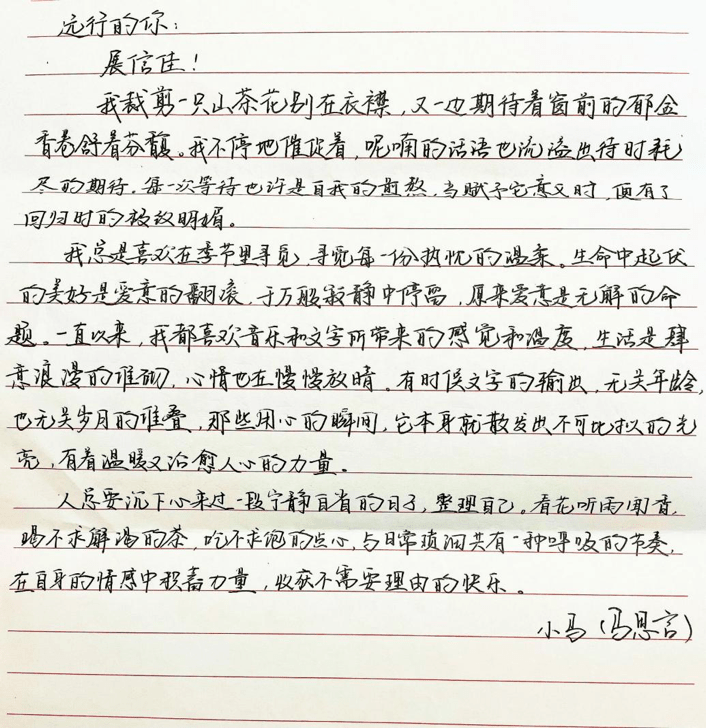 远行的你：
展信佳！
我裁剪一只山茶花别在衣襟，又一边期待着窗前的郁金
香卷舒着芬馥。我不停地催促着，呢喃的话语也流溢出待时耗
尽的期待。每一次等待也许是自我的煎熬，当赋予它意义时，便有了
回归时的极致明媚。
我总是喜欢在季节里寻觅，寻觅每一份热忱的温柔。生命中起伏
的美好是爱意的翻滚，于万般寂静中停留，原来爱意是无解的命
题。一直以来，我都喜欢音乐和文字所带来的感觉和温度，生活是肆
意浪漫的堆砌，心情也在慢慢放晴。有时候文字的输出，无关年龄，
也无关岁月的堆叠，那些用心的瞬间，它本身就散发出不可比拟的光
亮，有着温暖又治愈人心的力量。
人总要沉下心来过一段宁静自省的日子，整理自己。看花听雨闻音，
喝不求解渴的茶，吃不求饱的点心，与日常琐洄共有一种呼吸的节奏，
在自身的情感中积蓄力量，收获不需要理由的快乐。
小马（冯思言）